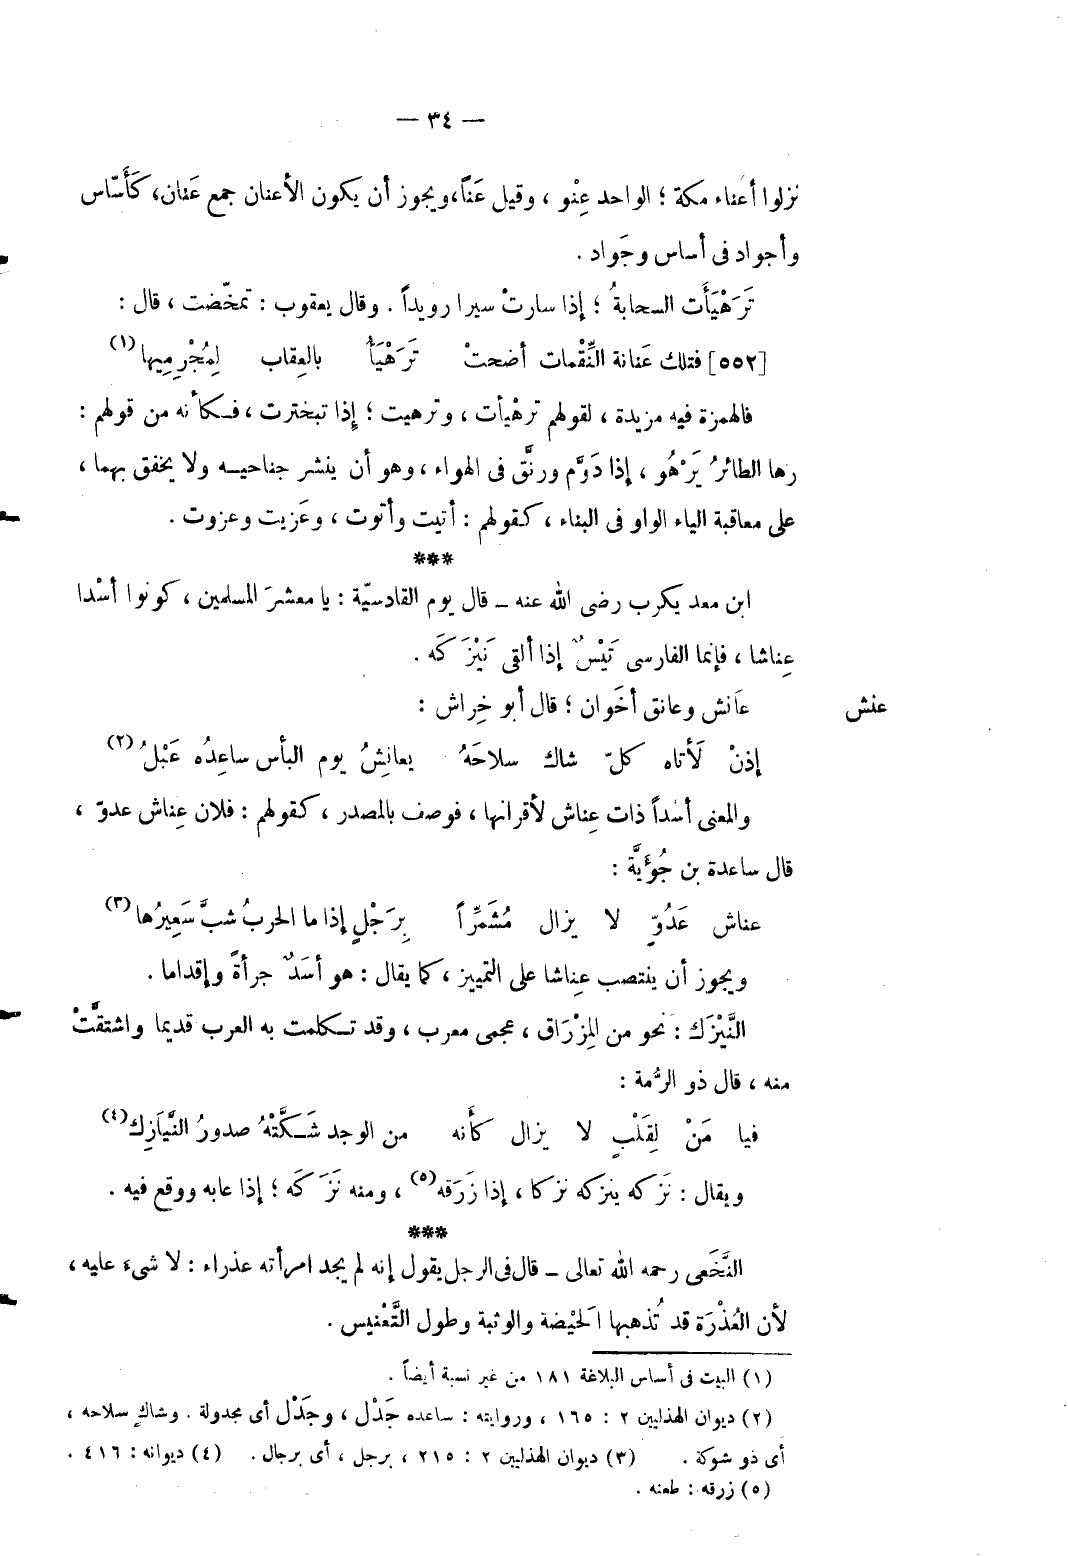 — ٣٤ —
نزلوا أعناء مكة ؛ الواحد عِنْو ، وقيل عَنًا،ويجوز أن يكون الأعنان جمع عَنان، كَأَسَّاس
وأجواد فى أساس وجَواد .
تَرَهْيَأَت السحابةُ ؛ إذا سارتْ سيرا رويداً . وقال يعقوب : تمخّضت ، قال :
[٥٥٢] فتلك عَنانة النِّقْمات أضحتْ تَرَهْيَأُ بالعِقاب لِمُجْرِمِيها(١)
فالهمزة فيه مزيدة ، لقولهم ترهْيأت ، وترهيت ؛ إذا تبخترت ، فكأنه من قولهم :
رها الطائرُ يَرْهُو ، إذا دَوَّم ورنَّق فى الهواء ، وهو أن ينشر جناحيه ولا يخفق بهما ،
على معاقبة الياء الواو فى البناء ، كقولهم : أتيت وأتوت ، وعَزيت وعزوت .
***
ابن معد يكرب رضى الله عنه ــ قال يوم القادسيّة : يا معشرَ المسلمين ، كونوا أسْدا
عِناشا ، فإنما الفارسى تَيْسٌ إذا ألقى نَيْزَكَه .
عنش
عَانش وعانق أخَوان ؛ قال أبو خِراش :
إذنْ لَأتاه كلّ شاك سلاحَهُ يعانِشُ يوم البأس ساعِدُه عَبْلُ(٢)
والمعنى أسْداً ذات عِناش لأقرانها ، فوصف بالمصدر ، كقولهم : فلان عِناش عدوّ ،
قال ساعدة بن جُؤَيَّة :
عناش عَدُوٍّ لا يزال مُشَمِّراً بِرَجْلٍ إذا ما الحربُ شبَّ سَعِيرُها(٣)
ويجوز أن ينتصب عِناشا على التمييز ، كما يقال : هو أسَدٌ جرأةً وإقداما .
النَّيْزَك : نحو من المِزْرَاق ، عجمى معرب ، وقد تكلمت به العرب قديما واشتقَّتْ
منه ، قال ذو الرُّمة :
فيا مَنْ لِقَلْبٍ لا يزال كأَنه من الوجد شَكَّتْهُ صدورُ النَّيَازِك(٤)
ويقال : نَزَكه ينزكه نزكا ، إذا زَرَقه(٥) ، ومنه نَزَكَه ؛ إذا عابه ووقع فيه .
***
النَّخَعى رحمه الله تعالى ــ قال فى الرجل يقول إنه لم يجد امرأته عذراء : لا شىءَ عليه ،
لأن العُذْرَة قد تُذهبها الَحيْضة والوثبة وطول التَّعْنيس .
(١) البيت فى أساس البلاغة ١٨١ من غير نسبة أيضاً .
(٢) ديوان الهذليين ٢ : ١٦٥ ، وروايته : ساعده جَدْل ، وجَدْل أى مجدولة . وشاكٍ سلاحه ،
أى ذو شوكة . (٣) ديوان الهذليين ٢ : ٢١٥ ، برجل ، أى برجال . (٤) ديوانه : ٤١٦ .
(٥) زرقه : طعنه .